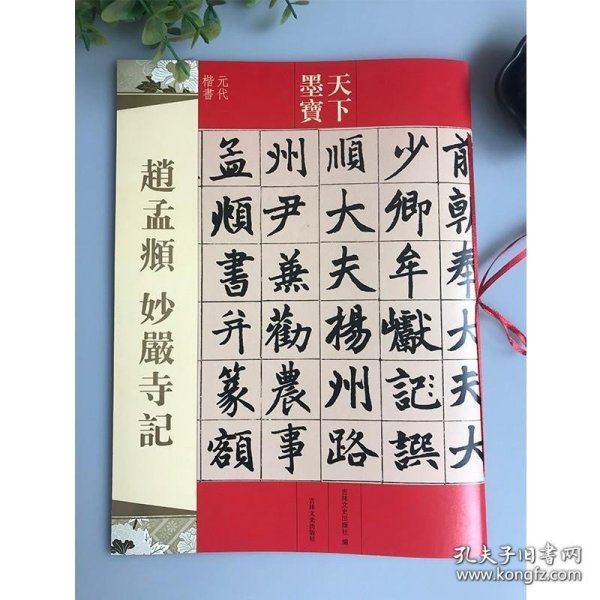 元代
楷書
天下
墨寶
趙孟頫 妙嚴寺記
前朝奉大夫大
少卿牟巘記譔
順大夫楊州路
州尹兼勸農事
孟頫書并篆額
吉林文史出版社 編
吉林文史出版社
孔夫子旧书网
www.kongfz.com